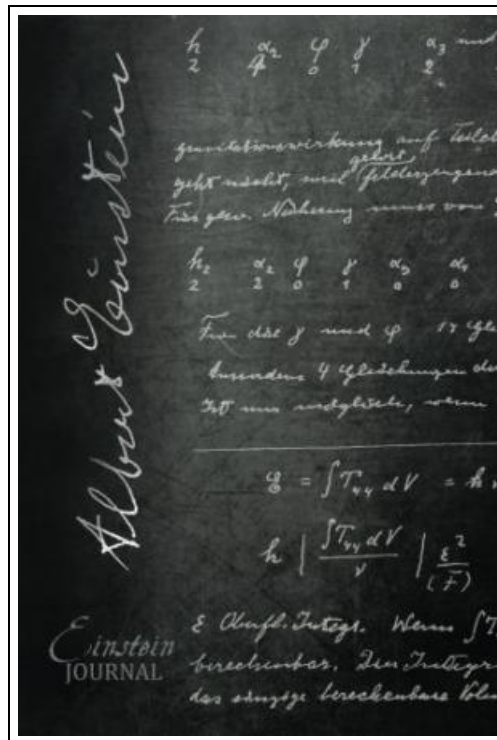 Albert Einstein
h α₂ φ γ α₃ und
2 4 0 1 2
gravitationswirkung auf Teilch
gehört
geht nicht, weil felderzeugene
Für gew. Näherung muss von
h₂ α₂ φ γ α₃ α₄
2 2 0 1 0 0
Für die γ und φ 17 Gle
Ausserdem 4 Gleichungen de
Ist nur möglich, wenn
ℰ = ∫T₄₄ dV = h
h | ∫T₄₄ dV / V | ε² / (F)
ε Oberfl. Integr. Wenn ∫T
berechenbar.
das einzige berechenbare Volu
Einstein
JOURNAL